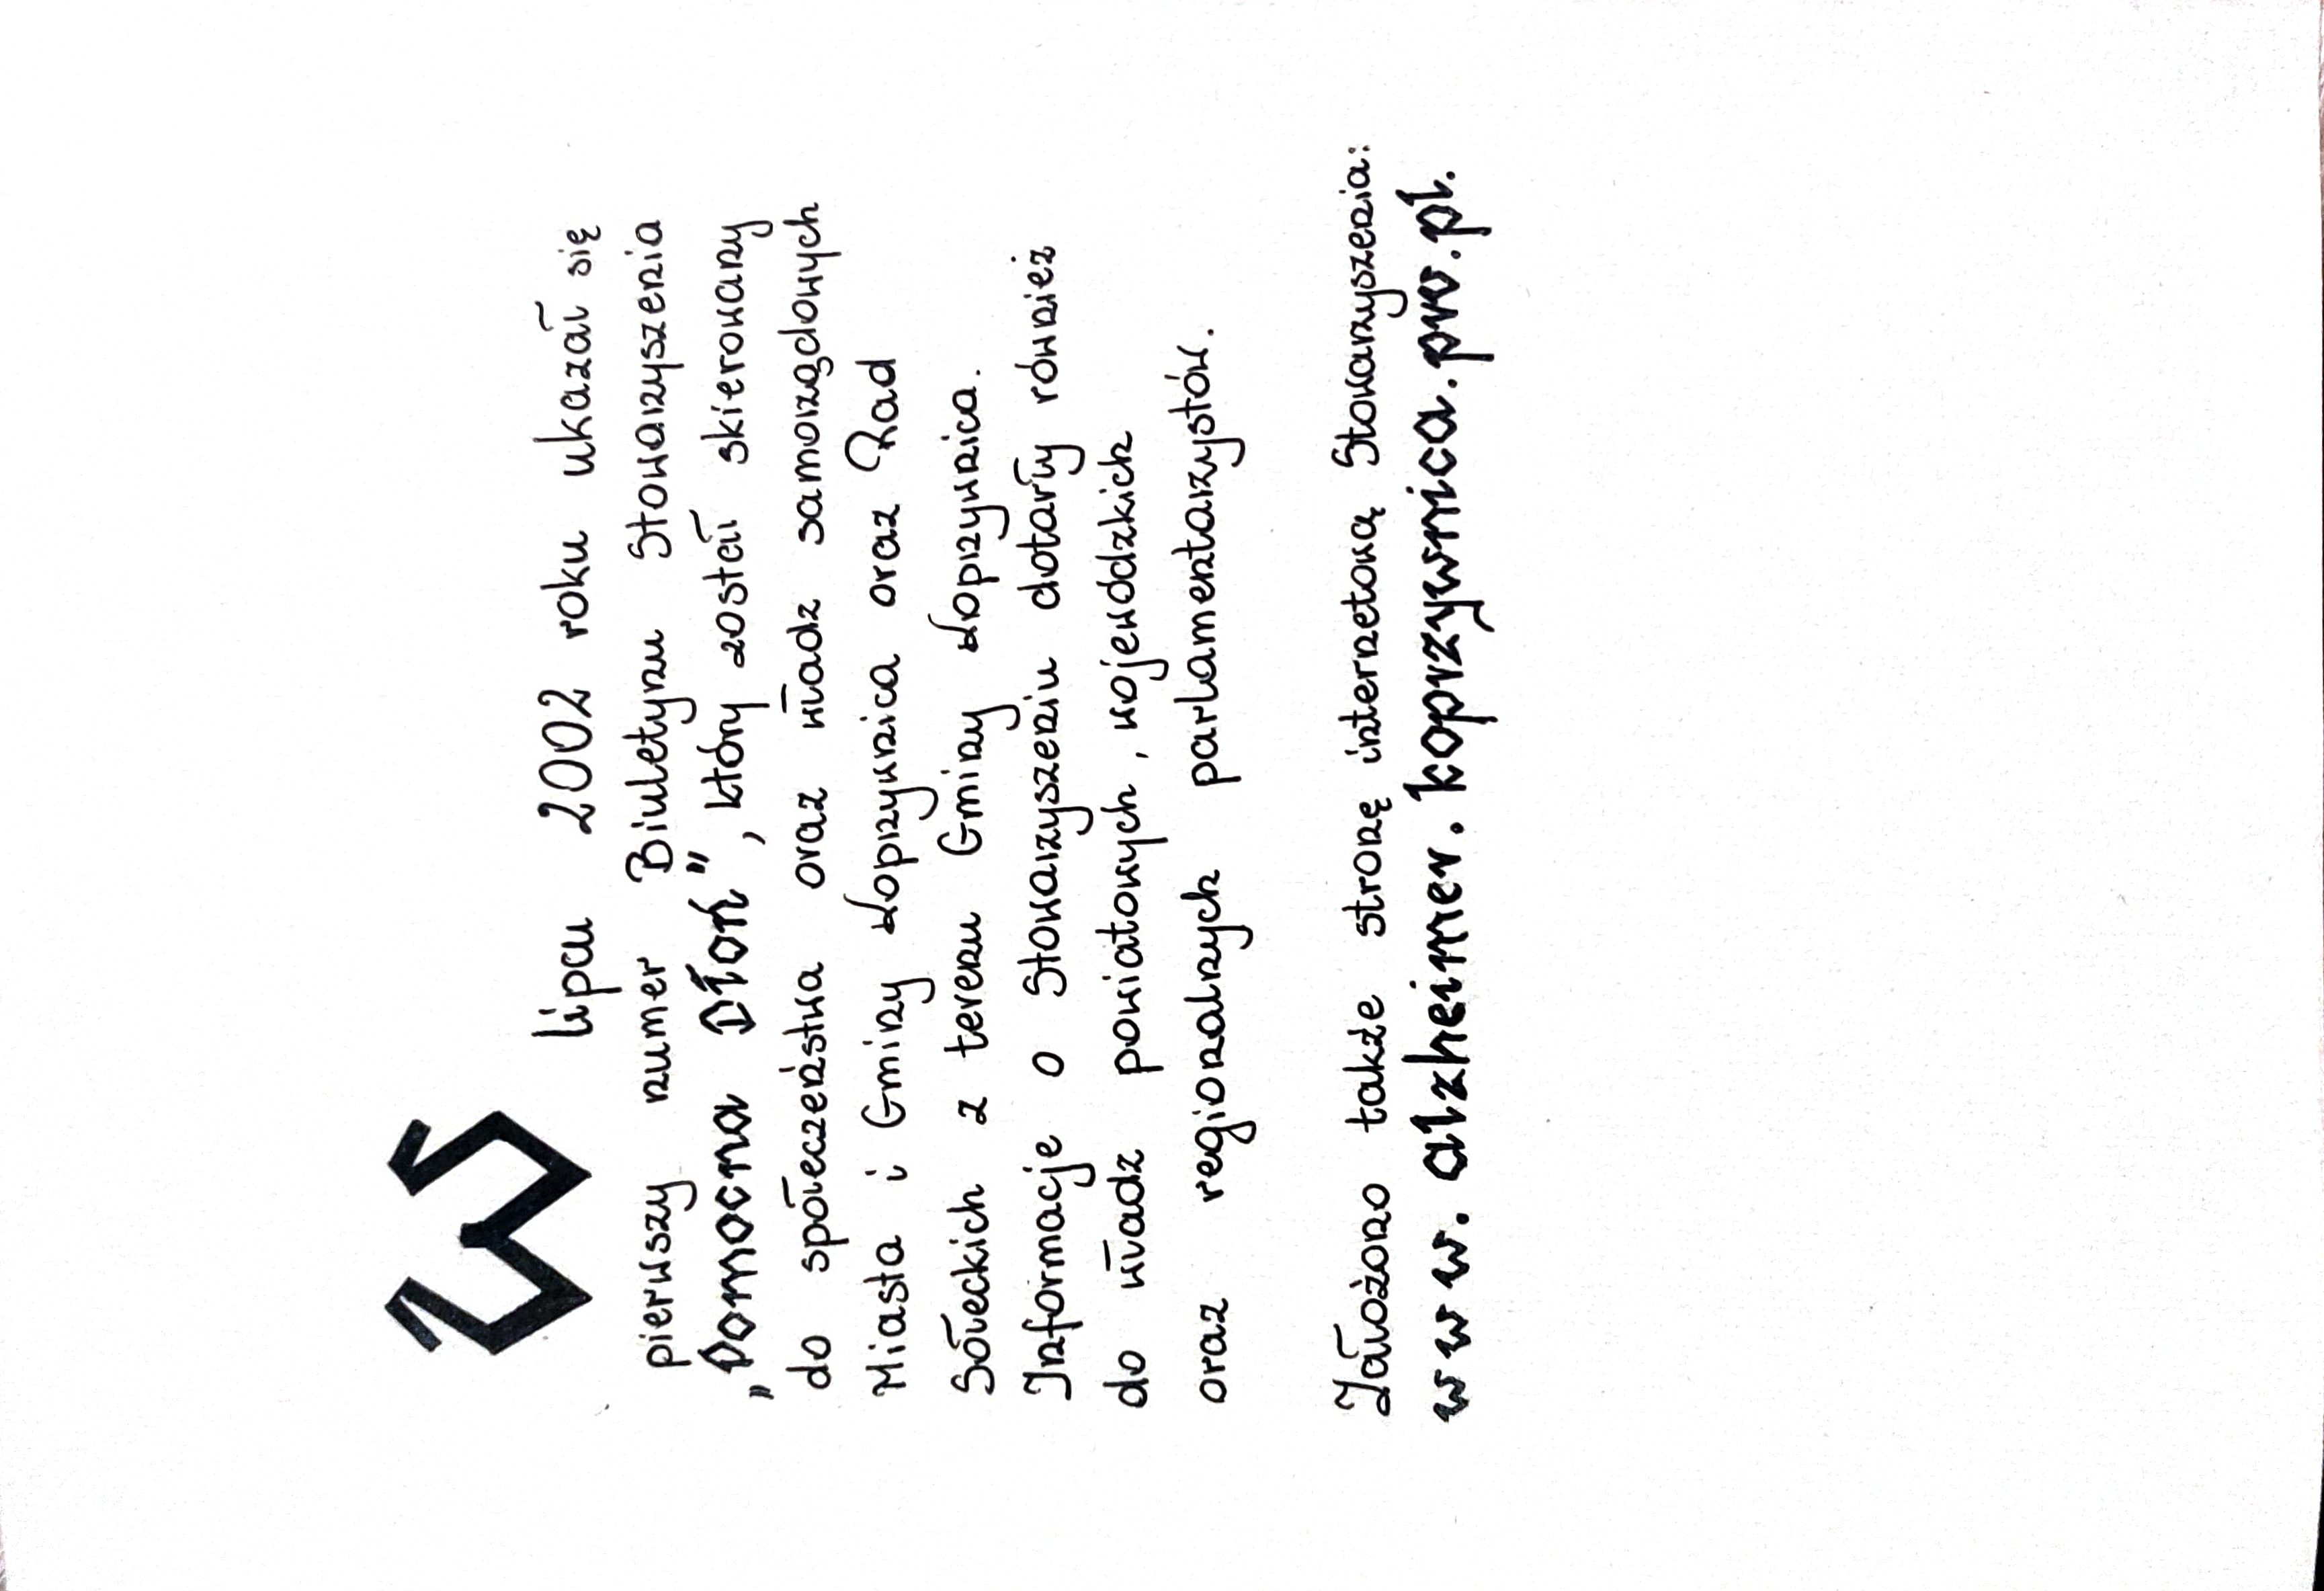 W lipcu 2002 roku ukazał się
pierwszy numer Biuletynu Stowarzyszenia
„Pomocna Dłoń”, który został skierowany
do społeczeństwa oraz władz samorządowych
Miasta i Gminy Koprzywnica oraz Rad
Sołeckich z terenu Gminy Koprzywnica.
Informacje o Stowarzyszeniu dotarły również
do władz powiatowych, wojewódzkich
oraz regionalnych parlamentarzystów.
Założono także stronę internetową Stowarzyszenia:
www.alzheimer.koprzywnica.prv.pl.